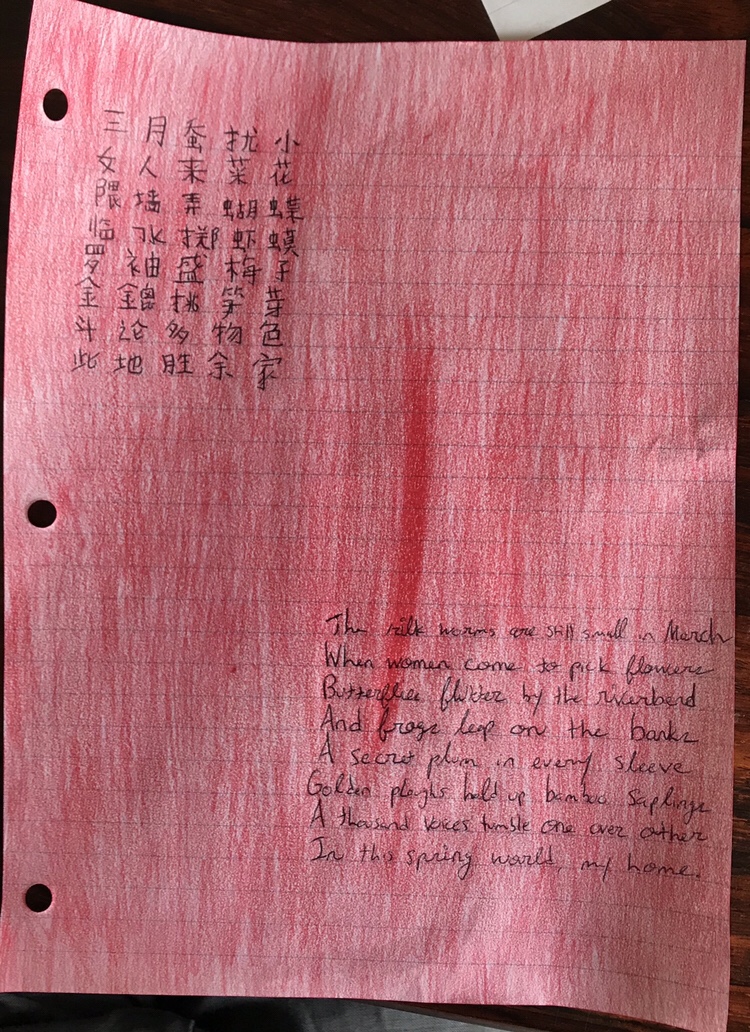 三月蚕扰小
女人来菜花
隈墙弄蝴蝶
临水掷虾蟆
罗袖盛梅子
金鎞挑笋芽
斗论多物色
此地胜余家
The silk worms are still small in March
When women come to pick flowers
Butterflies flutter by the riverbend
And frogs leap on the banks
A secret plum in every sleeve
Golden ploughs hold up bamboo saplings
A thousand voices tumble one over other
In this spring world, my home.